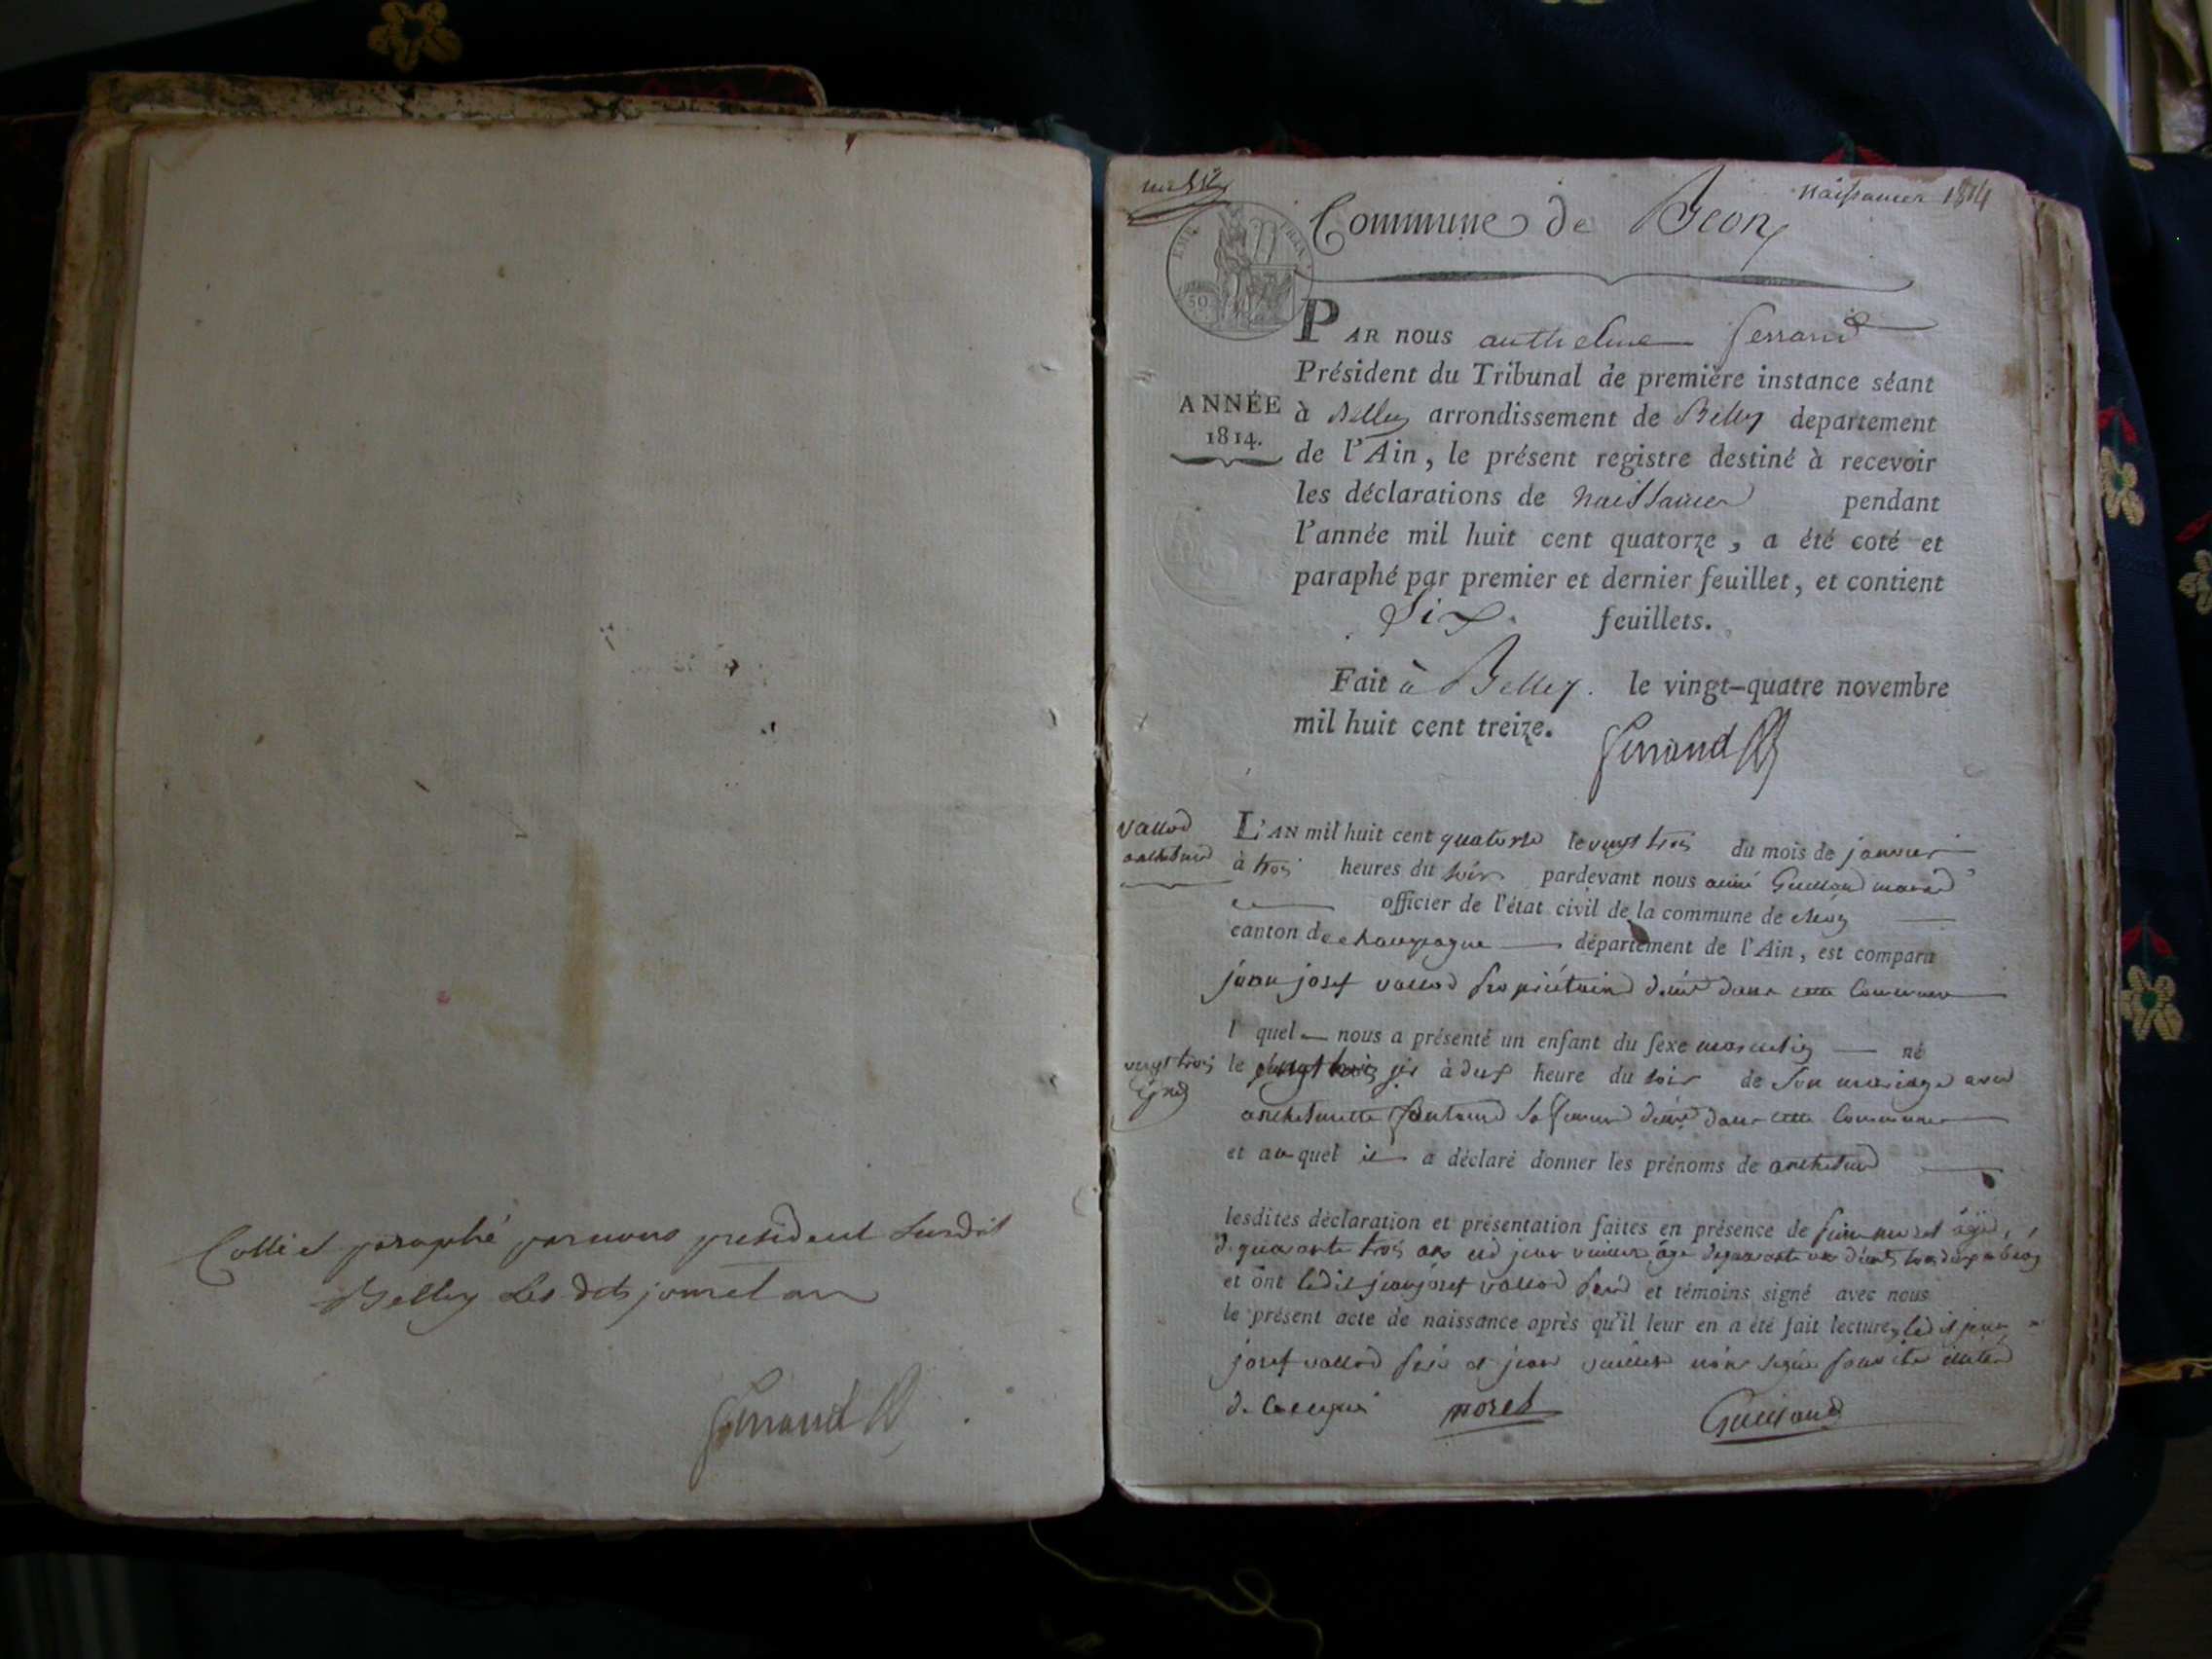 Cotté et paraphé par nous president susdit
Belley les dits jour et an
Ferrand
naissances 1814
Commune de Beon
EMP. FRAN.
50
PAR nous anthelme ferrand
Président du Tribunal de première instance séant
ANNÉE
1814.
à Belley arrondissement de Belley departement
de l'Ain, le présent registre destiné à recevoir
les déclarations de naissances pendant
l'année mil huit cent quatorze, a été coté et
paraphé par premier et dernier feuillet, et contient
Six feuillets.
Fait à Belley. le vingt-quatre novembre
mil huit cent treize.
Ferrand
vallod
anthelme
L'AN mil huit cent quatorze le vingt trois du mois de janvier
à trois heures du soir pardevant nous aimé Guilland maire
officier de l'état civil de la commune de
canton de champagne département de l'Ain, est comparu
jean josef vallod propriétaire dans cette commune
l quel nous a présenté un enfant du sexe masculin né
vingt trois
le à deux heure du soir de son mariage avec
anthelmette sa femme dans cette commune
et au quel il a déclaré donner les prénoms de anthelme
lesdites déclaration et présentation faites en présence de moret âgé
de quarante trois ans et jean âgé de quarante
et ont ledit jean josef vallod père et témoins signé avec nous
le présent acte de naissance après qu'il leur en a été fait lecture, ledit jean
josef vallod père et jean non signé
de ce enquis moret Guilland